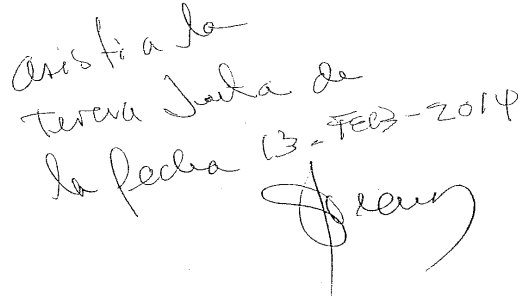 asisti a la
tercera Junta de
la fecha 13-FEB-2014